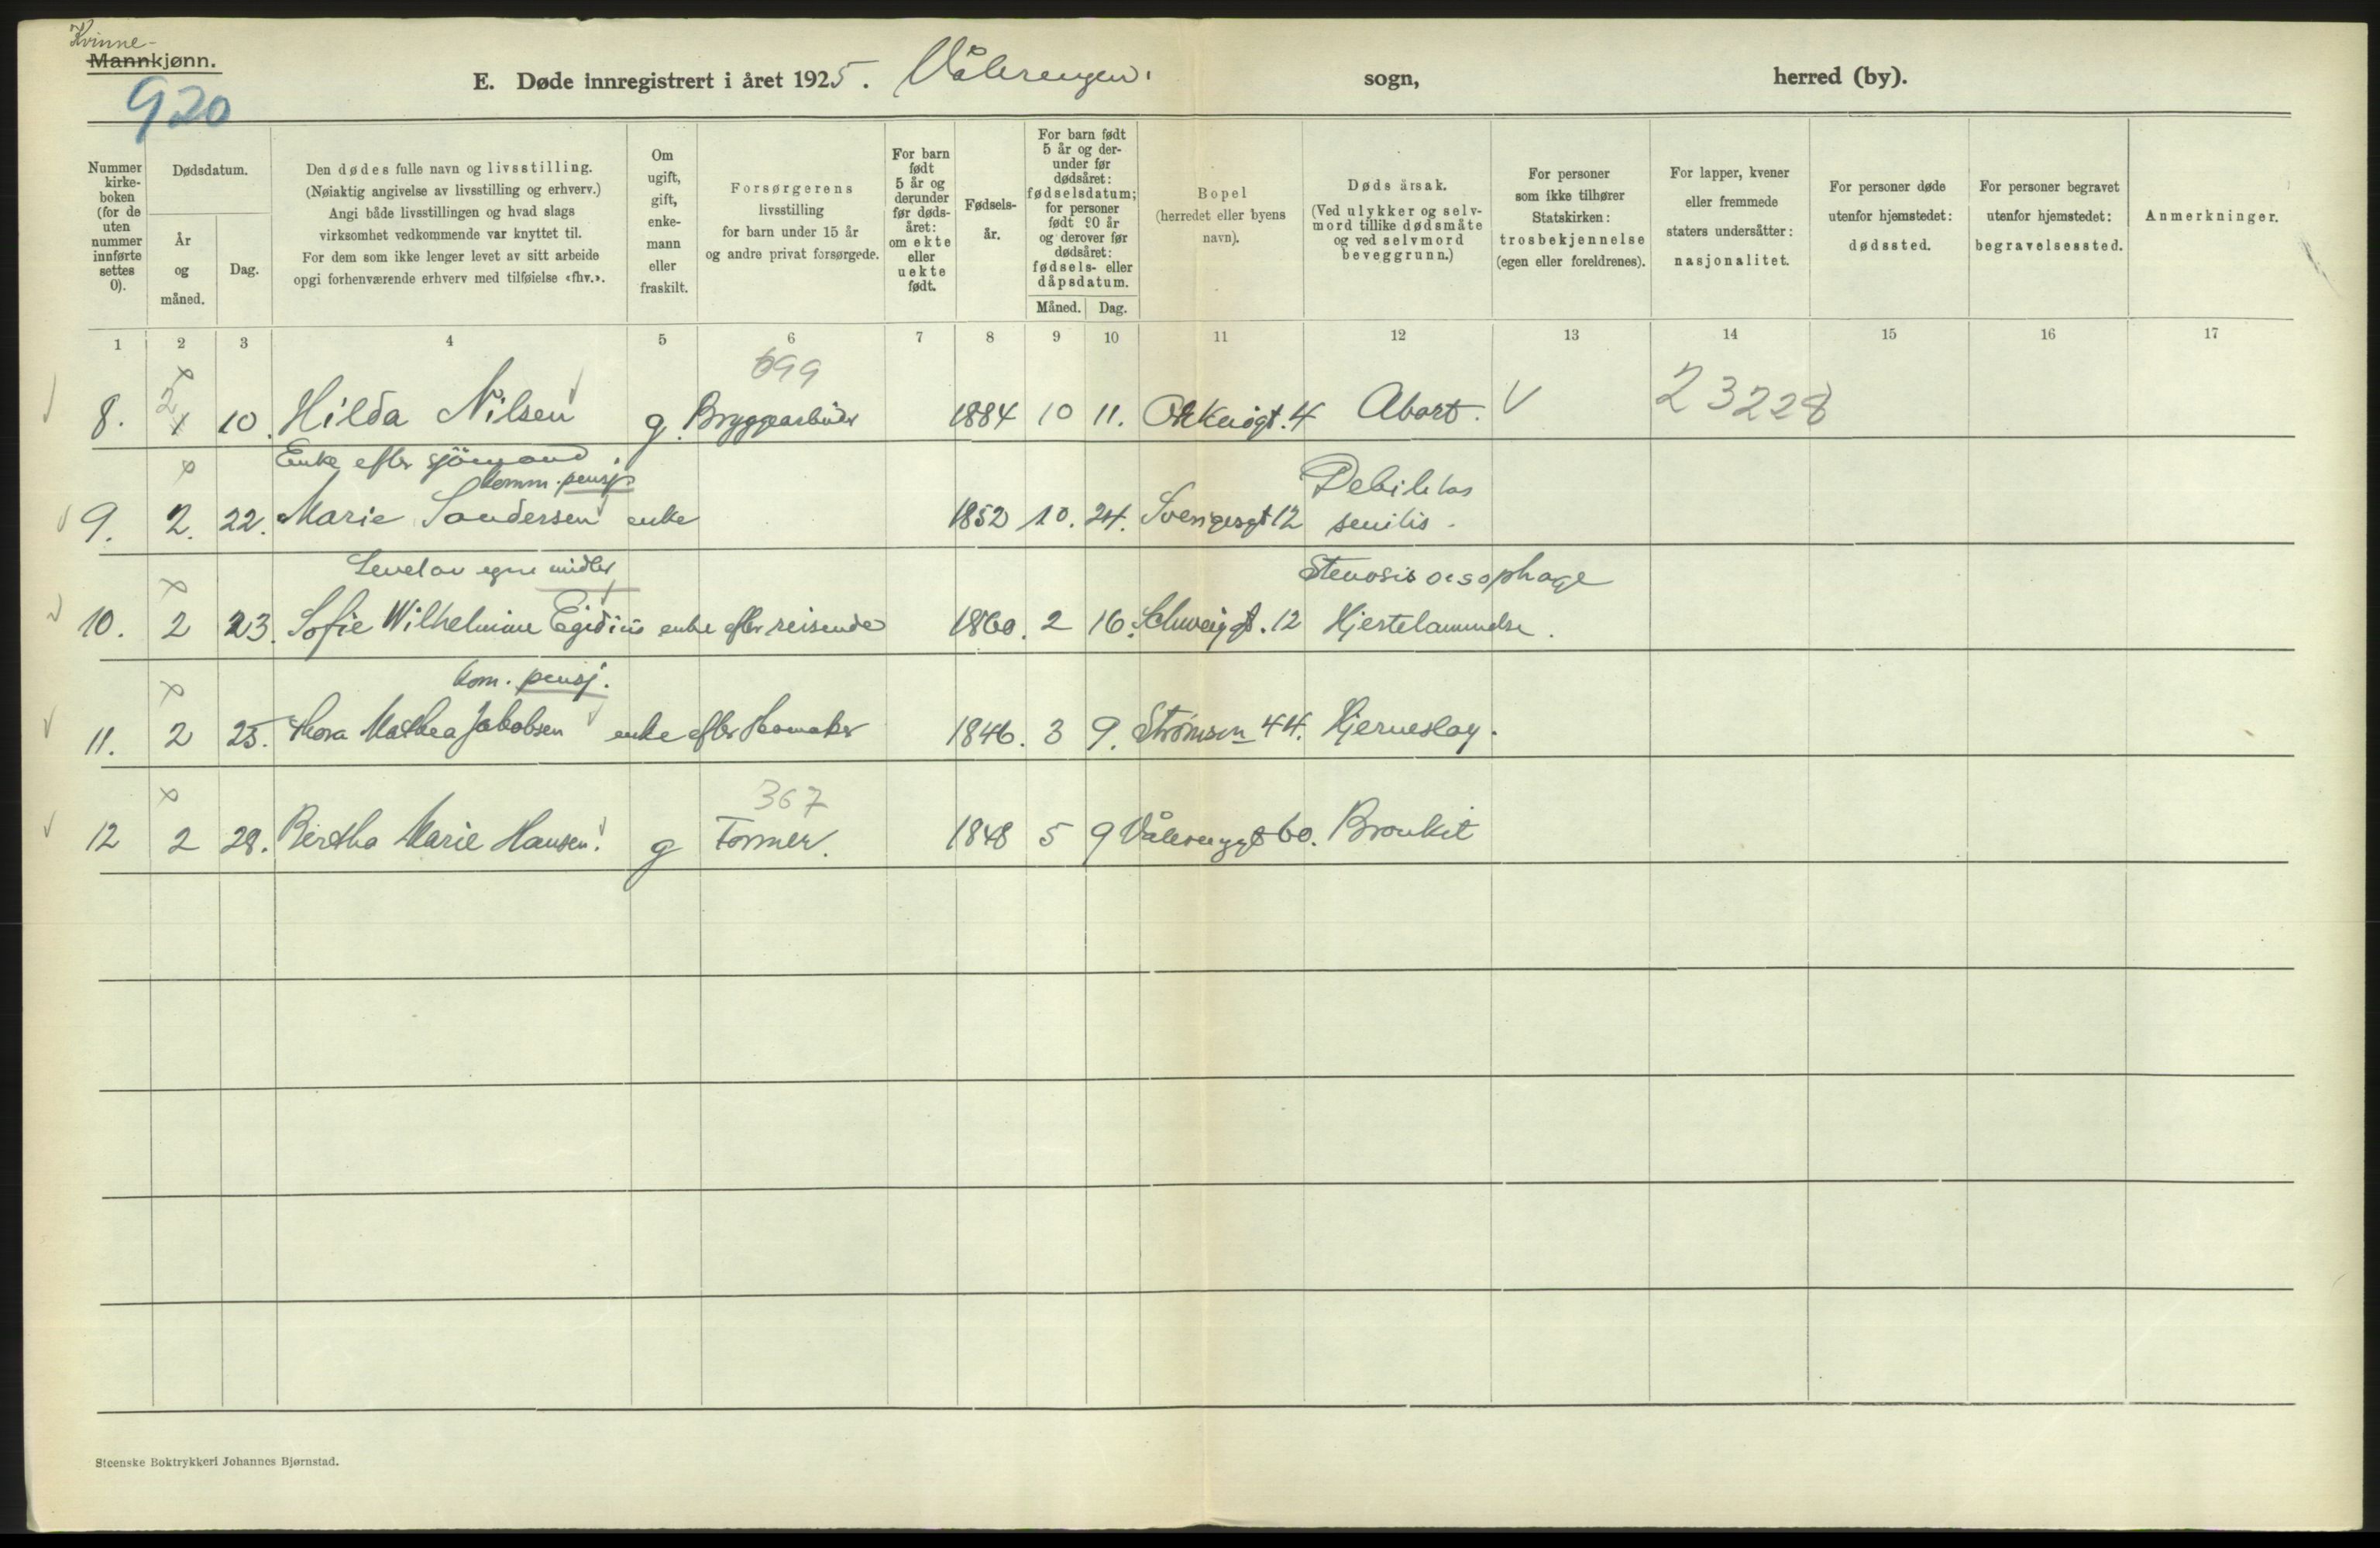 Kvinne-
Mannkjønn.
920
E. Døde innregistrert i året 1925. Vålerengen. sogn, herred (by).
Nummer kirke-boken (for de uten nummer innførte settes 0).
Dødsdatum.
År og måned.
Dag.
Den dødes fulle navn og livsstilling.
(Nøiaktig angivelse av livsstilling og erhverv.)
Angi både livsstillingen og hvad slags
virksomhet vedkommende var knyttet til.
For dem som ikke lenger levet av sitt arbeide
opgi forhenværende erhverv med tilføielse «fhv.».
Om ugift, gift, enke-mann eller fraskilt.
Forsørgerens
livsstilling
for barn under 15 år
og andre privat forsørgede.
For barn født 5 år og derunder før døds-året: om ekte eller uekte født.
Fødsels-år.
For barn født 5 år og der-under før dødsåret: fødselsdatum; for personer født 90 år og derover før dødsåret: fødsels- eller dåpsdatum.
Måned. Dag.
Bopel
(herredet eller byens navn).
Dødsårsak.
(Ved ulykker og selv-mord tillike dødsmåte og ved selvmord beveggrunn.)
For personer som ikke tilhører Statskirken: trosbekjennelse (egen eller foreldrenes).
For lapper, kvener eller fremmede staters undersåtter: nasjonalitet.
For personer døde utenfor hjemstedet: dødssted.
For personer begravet utenfor hjemstedet: begravelsessted.
Anmerkninger.
1 2 3 4 5 6 7 8 9 10 11 12 13 14 15 16 17
699
8. 2 1 10. Hilda Nilsen g. Bryggearbeider 1884 10 11. 4 Abort. V 23228
Enke efter sjömand.
komm. pensj.
9. 2. 22. Marie Sandersen enke 1852 10. 24. Sverigesgt 12 Debilitas senilis.
Levet av egne midler
10. 2 23. Sofie Wilhelmine Egidius enke efter reisende 1860. 2 16. Schweigg. 12 Stenosis oesophage Hjertelammelse.
kom. pensj.
11. 2 25. Thora Mathea Jakobsen enke efter skomaker 1846. 3 9. Strømsvn 44. Hjerneslag.
367
12 2 28. Bertha Marie Hansen. g Tormer. 1848 5 9 Vålerenggt 60. Bronkit
Steenske Boktrykkeri Johannes Bjørnstad.